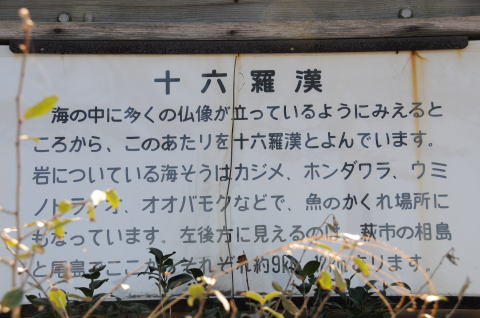 十六羅漢
海の中に多くの仏像が立っているようにみえると
ころから、このあたりを十六羅漢とよんでいます。
岩についている海そうはカジメ、ホンダワラ、ウミ
ノトラノオ、オオバモクなどで、魚のかくれ場所に
もなっています。左後方に見えるのは、萩市の相島
と尾島でここからそれぞれ約9km、12kmあります